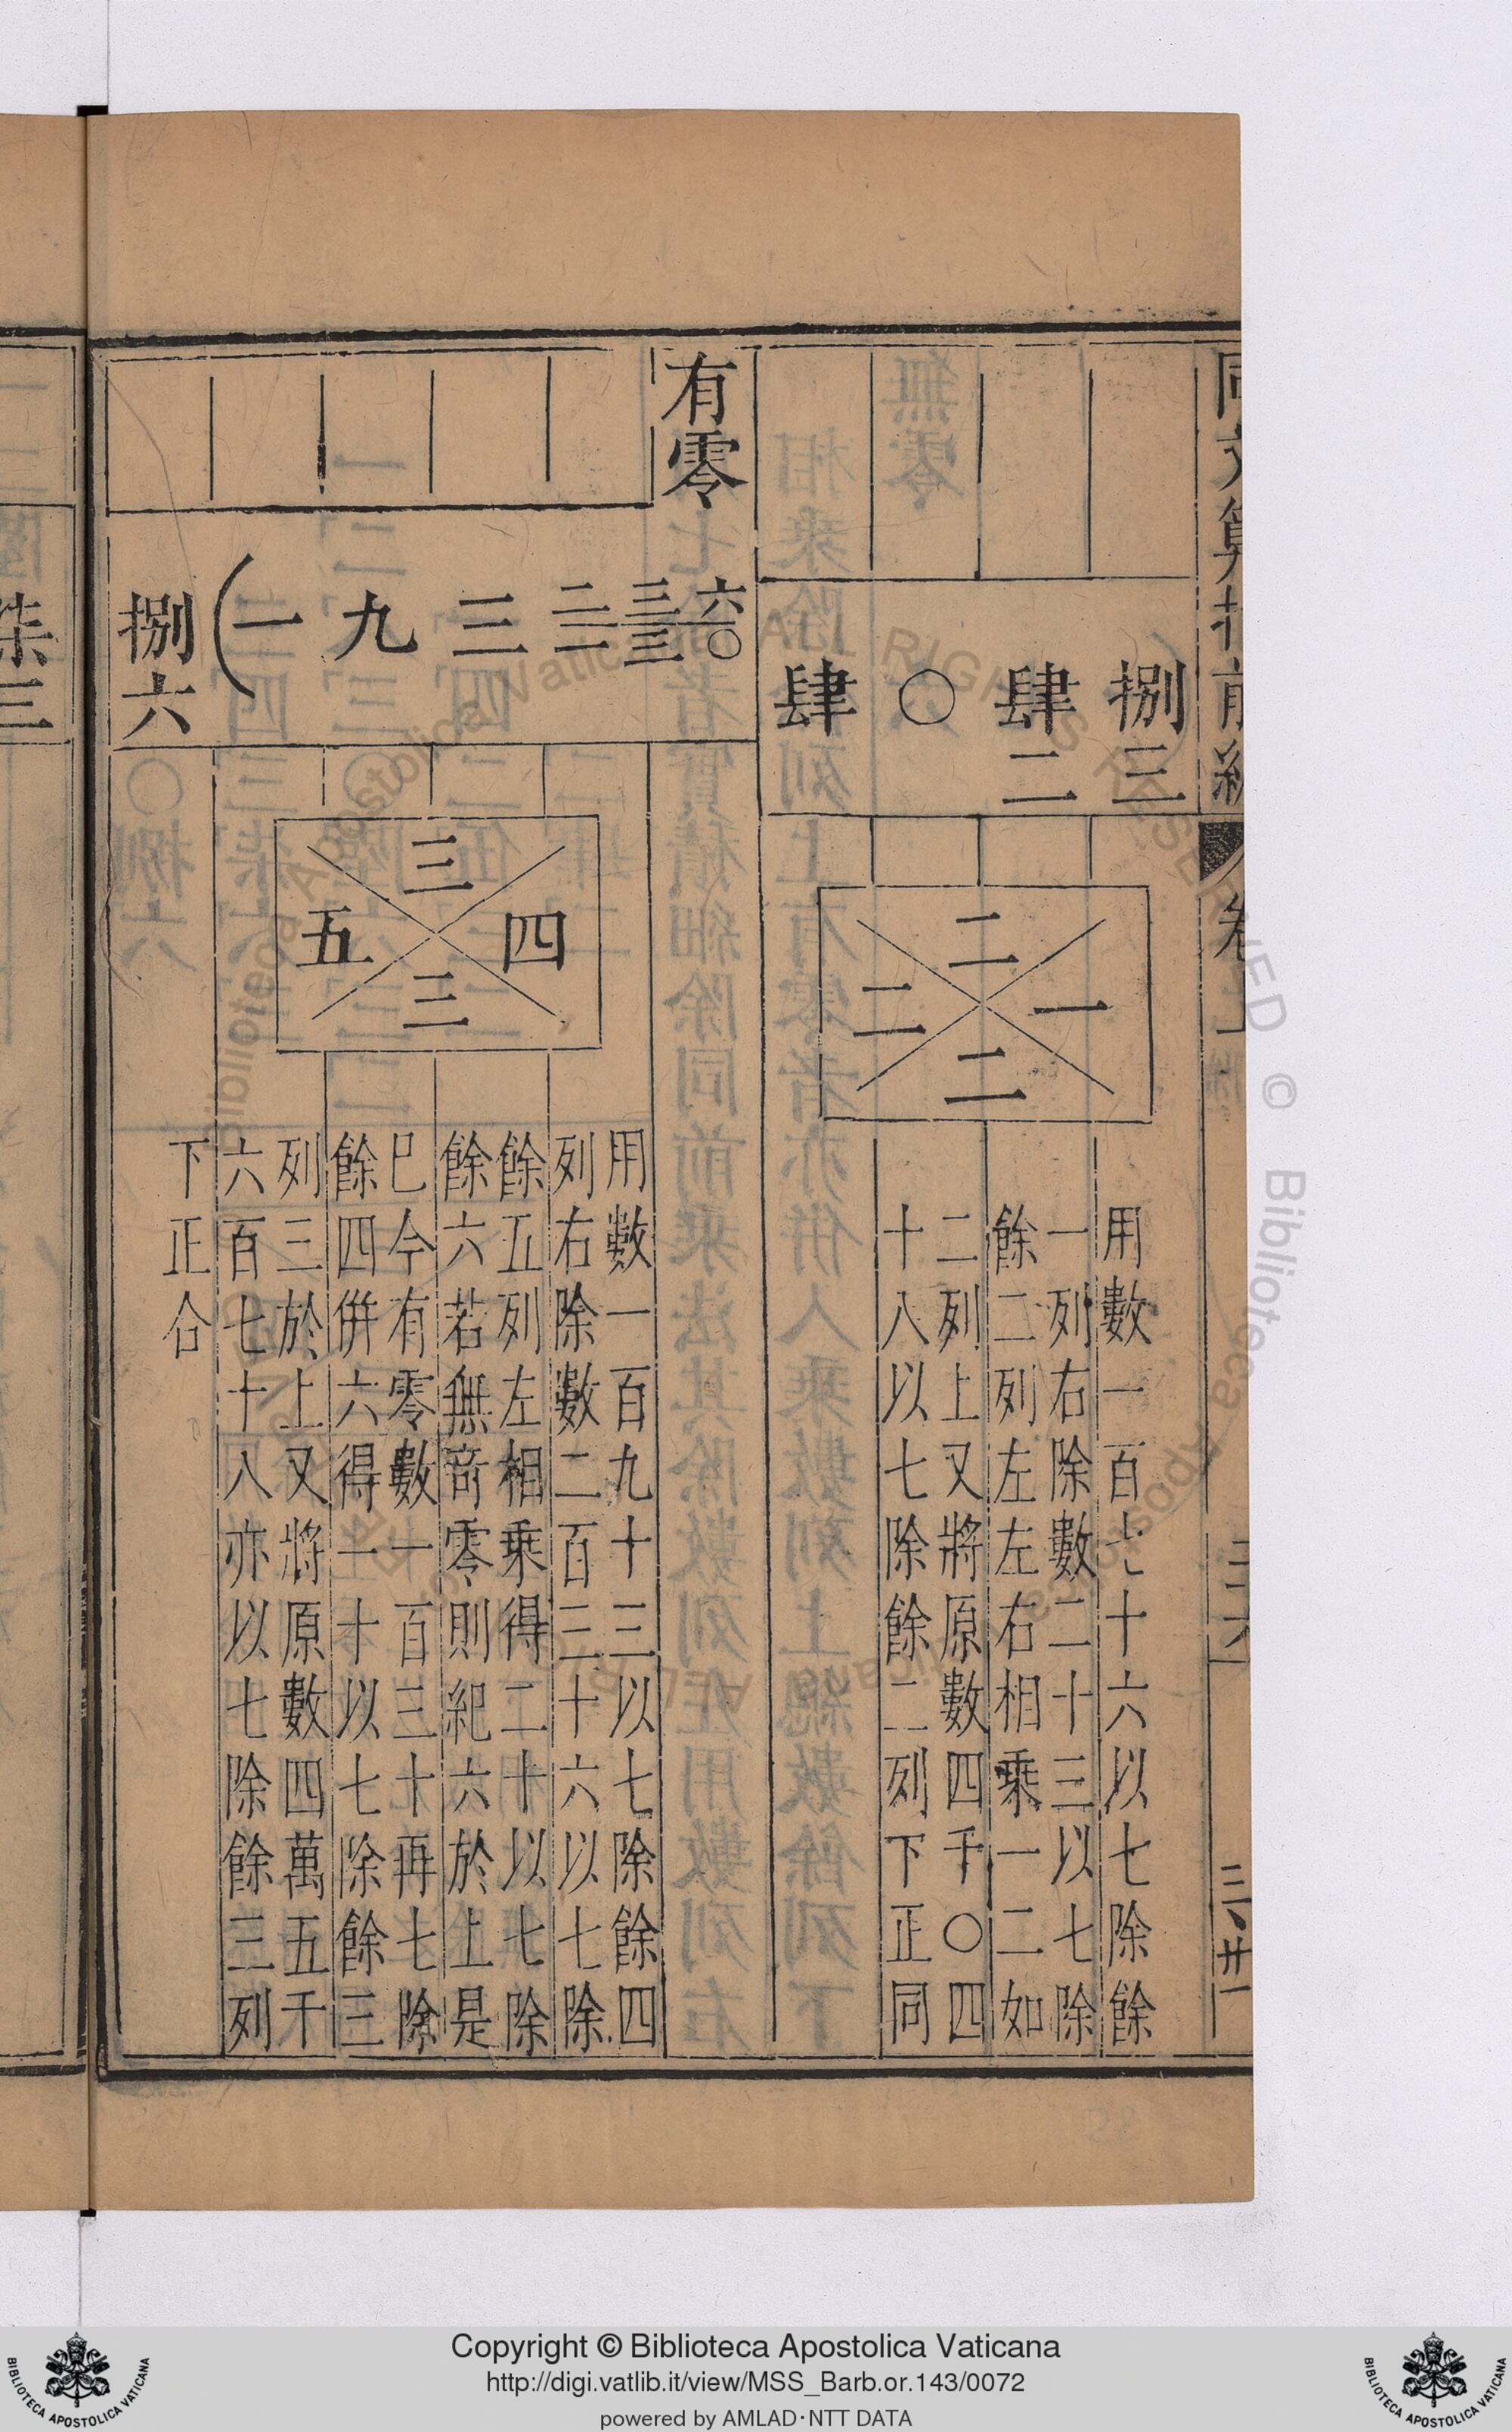 同文算指前編
卷上
捌三
肆二
〇
肆
二
一
二
二
用數一百七十六以七除餘
一列右除數二十三以七除
餘二列左左右相乘一二如
二列上又將原數四千〇四
十八以七除餘二列下正同
有零
六〇
三三
二一
三
九
一
捌六
三
四
五
三
用數一百九十三以七除餘四
列右除數二百三十六以七除
餘五列左相乘得二十以七除
餘六若無奇零則紀六於上是
已今有零數一百三十再七除
餘四併六得一十以七除餘三
列三於上又將原數四萬五千
六百七十八亦以七除餘三列
下正合
柒三
Copyright © Biblioteca Apostolica Vaticana
http://digi.vatlib.it/view/MSS_Barb.or.143/0072
powered by AMLAD·NTT DATA
BIBLIOTECA APOSTOLICA VATICANA
BIBLIOTECA APOSTOLICA VATICANA